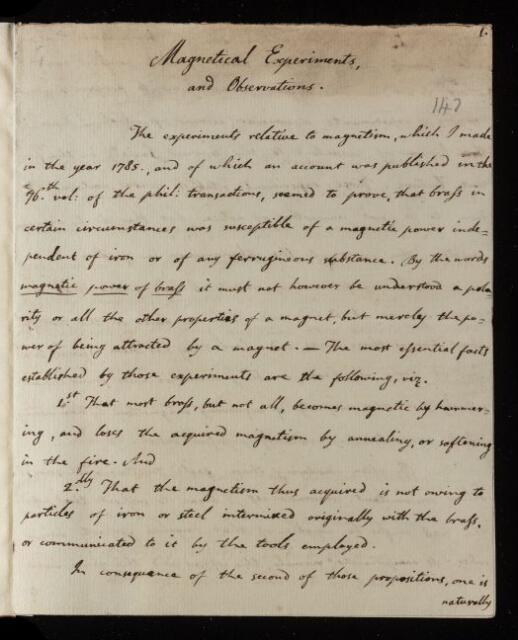 1.
Magnetical Experiments,
and Observations.
147
The experiments relative to magnetism, which I made
in the year 1785., and of which an account was published in the
76.th vol: of the phil: transactions, seemed to prove, that brass in
certain circumstances was susceptible of a magnetic power inde-
pendent of iron or of any ferrugineous substance. By the words
magnetic power of brass it must not however be understood a pola-
rity or all the other properties of a magnet, but merely the po-
wer of being attracted by a magnet. — The most essential facts
established by those experiments are the following, viz.
1.st That most brass, but not all, becomes magnetic by hammer-
ing, and loses the acquired magnetism by annealing, or softening
in the fire. And
2.dly That the magnetism thus acquired is not owing to
particles of iron or steel intermixed originally with the brass,
or communicated to it by the tools employed.
In consequence of the second of those propositions, one is
naturally